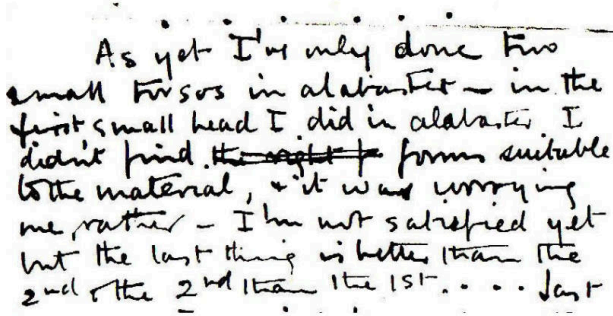 As yet I've only done two
small torsos in alabaster – in the
first small head I did in alabaster I
didn't find the right f forms suitable
to the material, & it was worrying
me, rather – I'm not satisfied yet
but the last thing is better than the
2nd & the 2nd than the 1st . . . . last